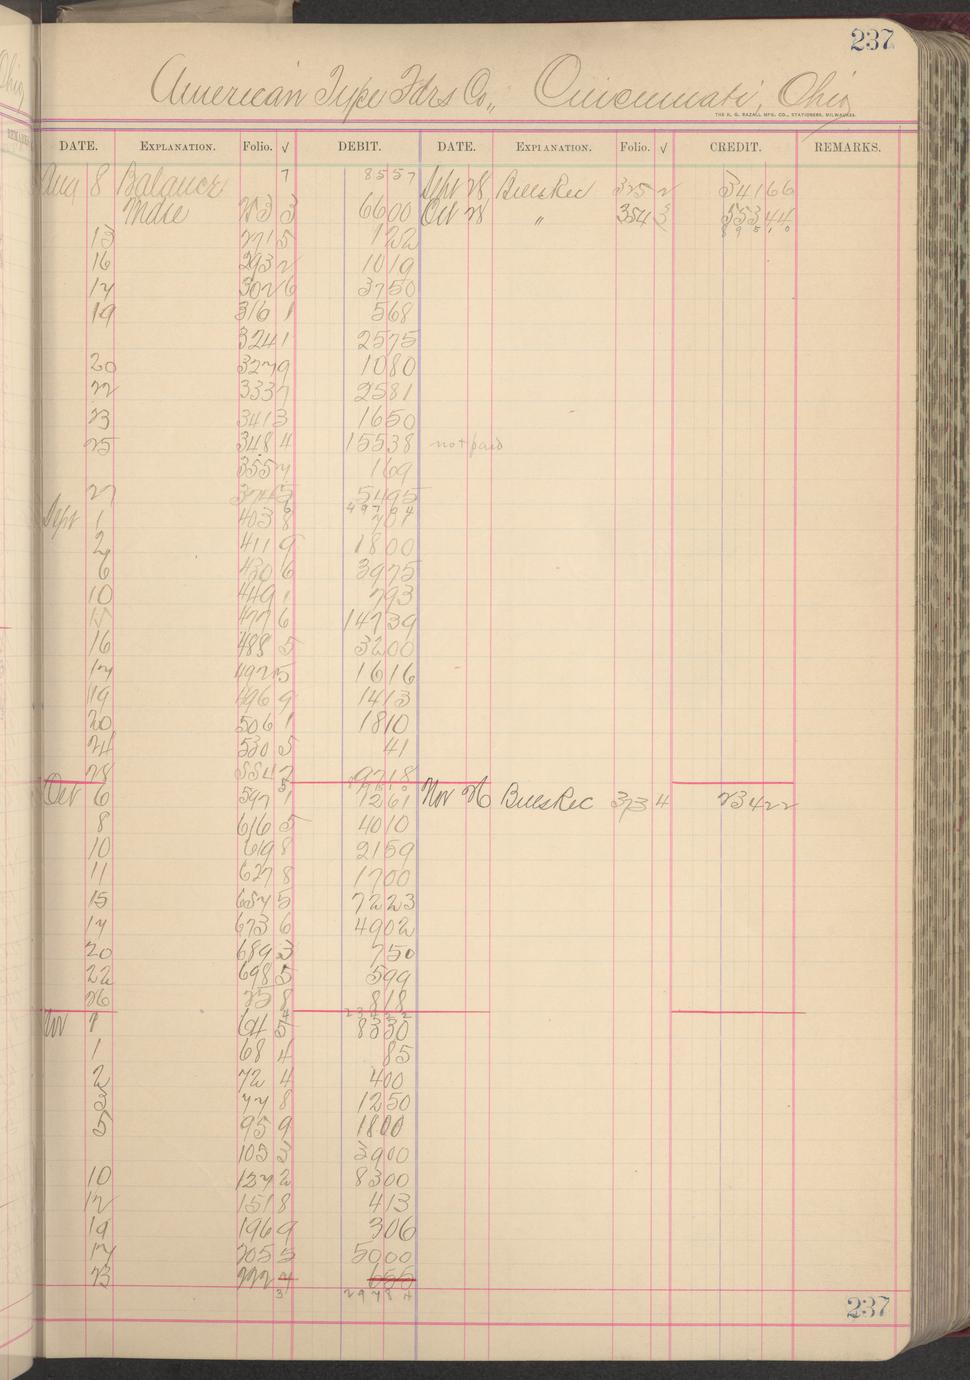 237
American Type Fdrs Co., Cincinnati, Ohio
THE H. G. RAZALL MFG. CO., STATIONERS, MILWAUKEE.
DATE. EXPLANATION. Folio. √ DEBIT. DATE. EXPLANATION. Folio. √ CREDIT. REMARKS.
Aug 8 Balance 7 8557 Sept 28 Bills Rec 325 2 34166
Mdse 253 3 6600 Oct 28 " 354 3 55344
13 271 5 122 89510
16 293 2 1019
17 302 6 3750
19 316 1 568
324 1 2575
20 327 9 1080
22 333 7 2581
23 341 3 1650
25 348 4 15538 not paid
355 7 169
27 374 5 5495
Sept 1 403 8 707
2 411 9 1800
6 430 6 3975
10 449 1 793
15 477 6 14739
16 488 5 3200
17 492 5 1616
19 496 9 1413
20 506 1 1810
24 530 5 41
28 554 2 9718
Oct 6 597 1 1261 Nov 26 Bills Rec 373 4 23422
8 616 5 4010
10 619 8 2159
11 627 8 1700
15 657 5 7223
17 673 6 4902
20 689 3 750
22 698 5 599
26 25 8 818
23422
Nov 1 64 5 8330
1 68 4 85
2 72 4 400
3 77 8 1250
5 95 9 1800
103 3 3900
10 137 2 8300
12 151 8 413
19 196 9 306
17 205 5 5000
23 222 4 655
3 29784
237